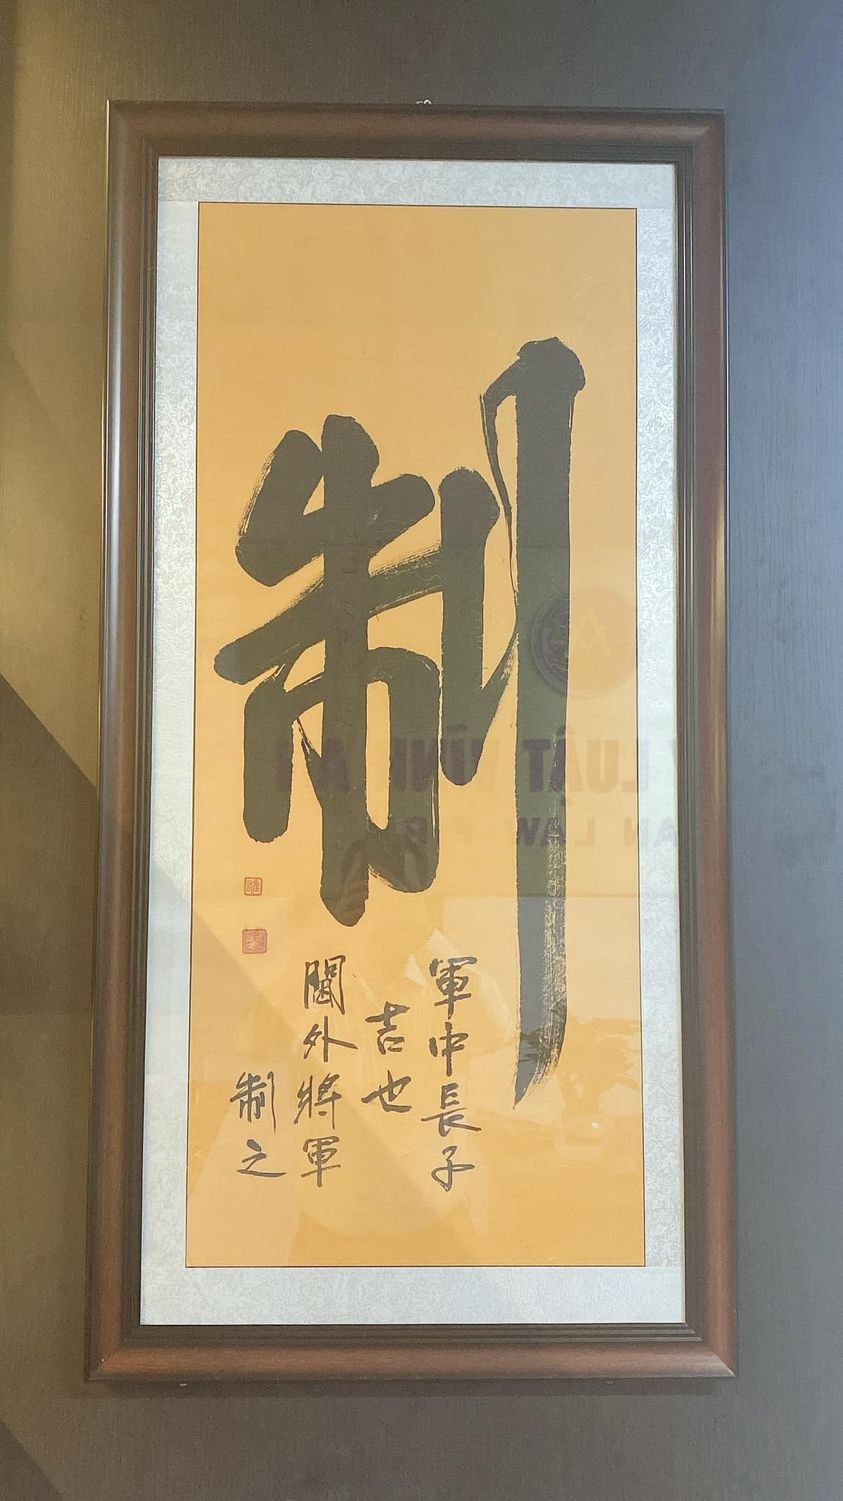 制
軍中長子
吉也
閫外將軍
制之
LUẬT VĨNH AN
AN LAW FIR